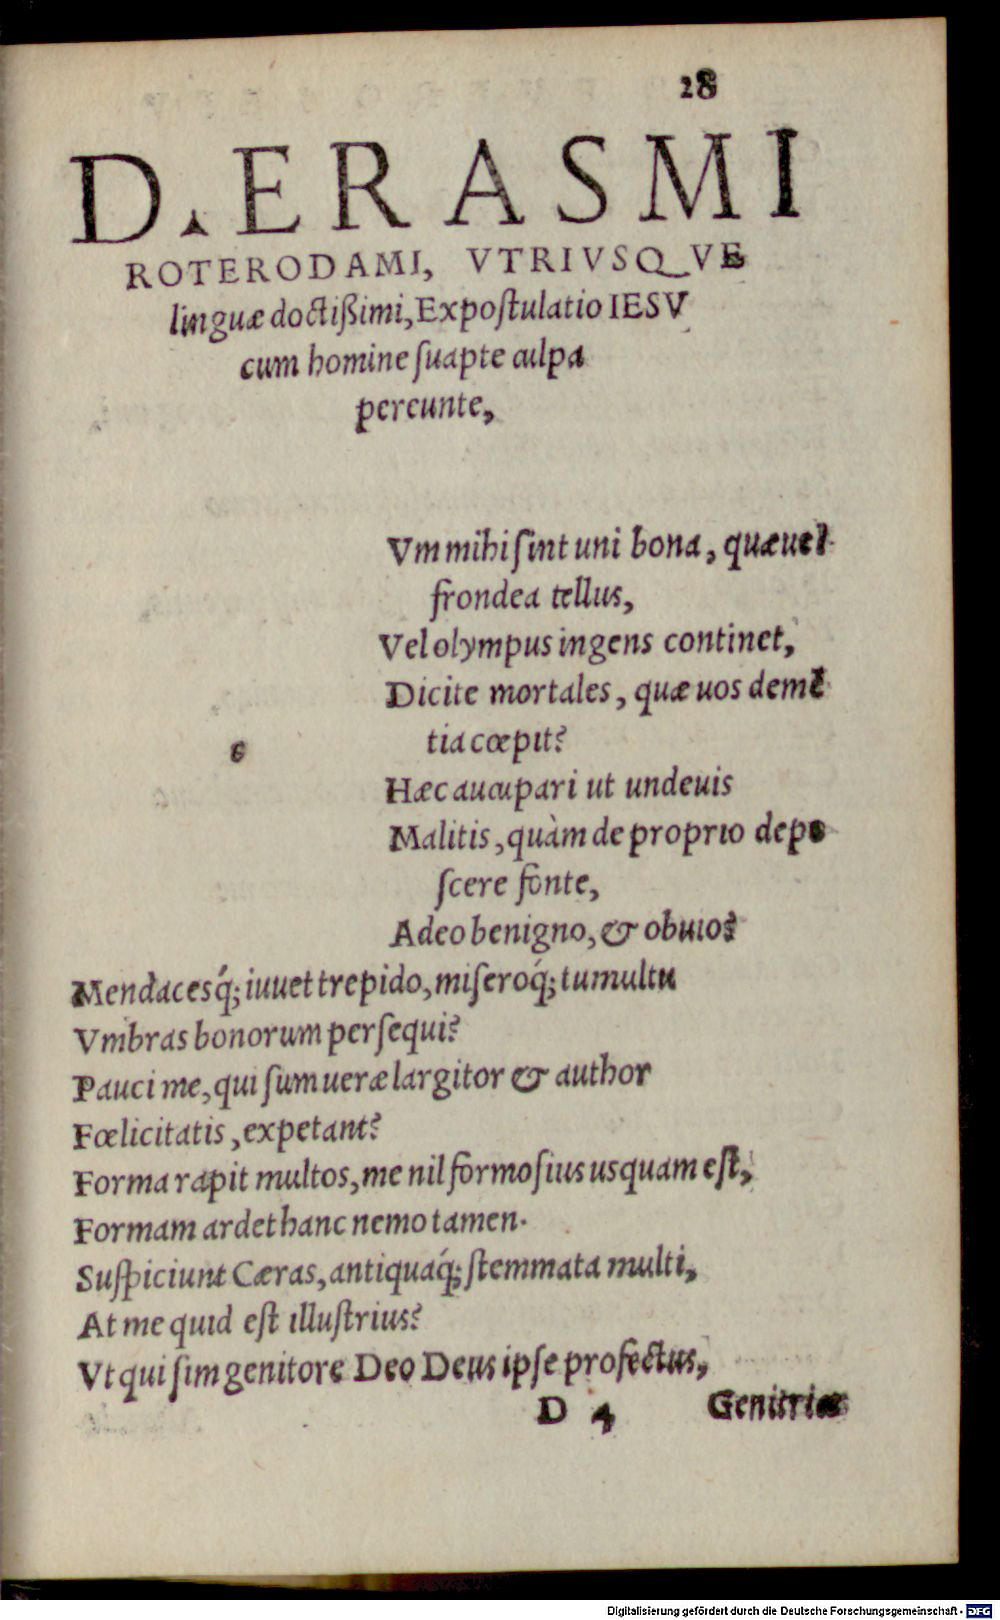 28
D. ERASMI
ROTERODAMI, VTRIVSQVE
linguæ doctißimi, Expoſtulatio IESV
cum homine ſuapte culpa
pereunte,
Vm mihi ſint uni bona, quæ uel
frondea tellus,
Vel olympus ingens continet,
Dicite mortales, quæ uos demē
tia cœpit?
c
Hæc aucupari ut undeuis
Malitis, quàm de proprio depo
ſcere fonte,
Adeo benigno, & obuio?
Mendacesq́; iuuet trepido, miſeroq́; tumultu
Vmbras bonorum perſequi?
Pauci me, qui ſum ueræ largitor & author
Fœlicitatis, expetant?
Forma rapit multos, me nil formoſius usquam eſt,
Formam ardet hanc nemo tamen.
Suſpiciunt Cæras, antiquaq́; ſtemmata multi,
At me quid eſt illuſtrius?
Vt qui ſim genitore Deo Deus ipſe profectus,
D 4 Genitrice
Digitalisierung gefördert durch die Deutsche Forschungsgemeinschaft - DFG